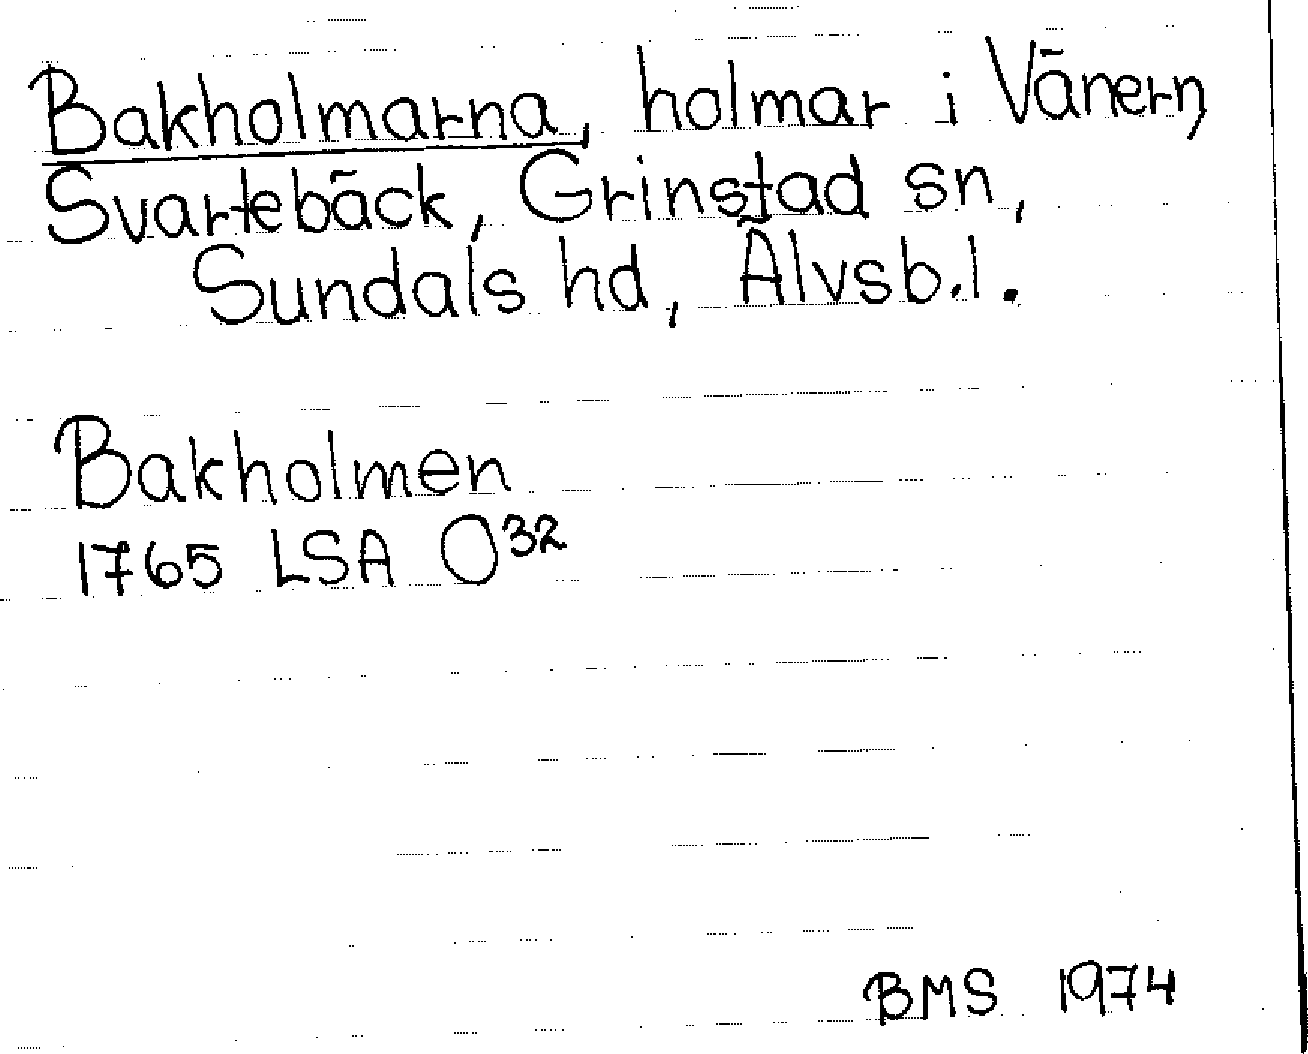 Bakholmarna, holmar i Vänern,
Svartebäck, Grinstad sn,
Sundals hd, Älvsb.l.
Bakholmen
1765 LSA O32
BMS 1974